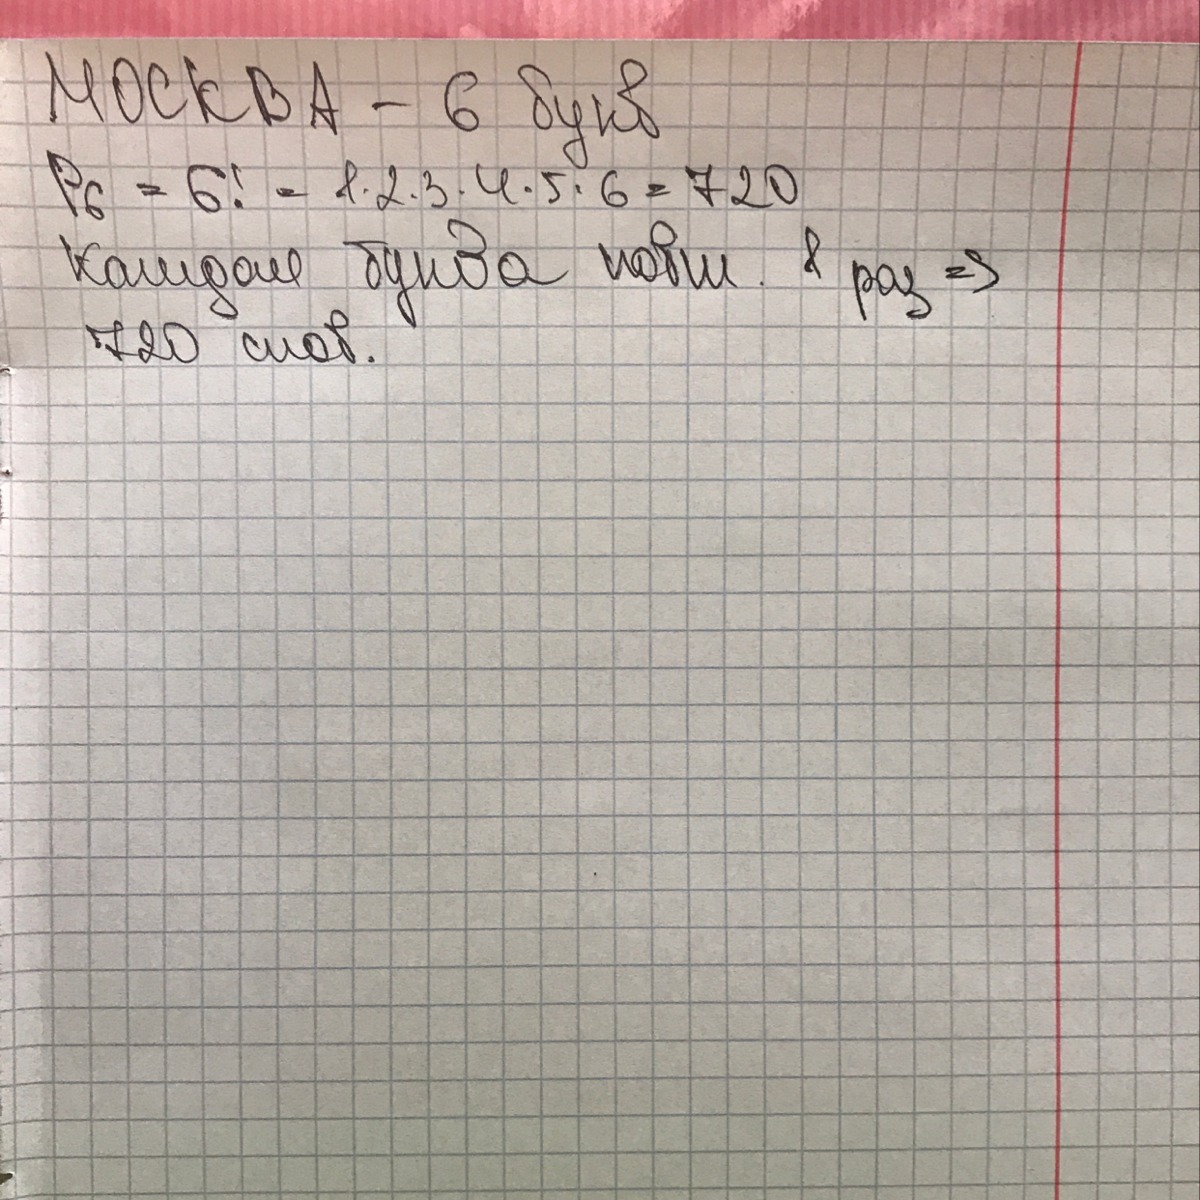 МОСКВА - 6 букв
P₆ = 6! = 1·2·3·4·5·6 = 720
Каждая буква повт. 1 раз =>
720 слов.